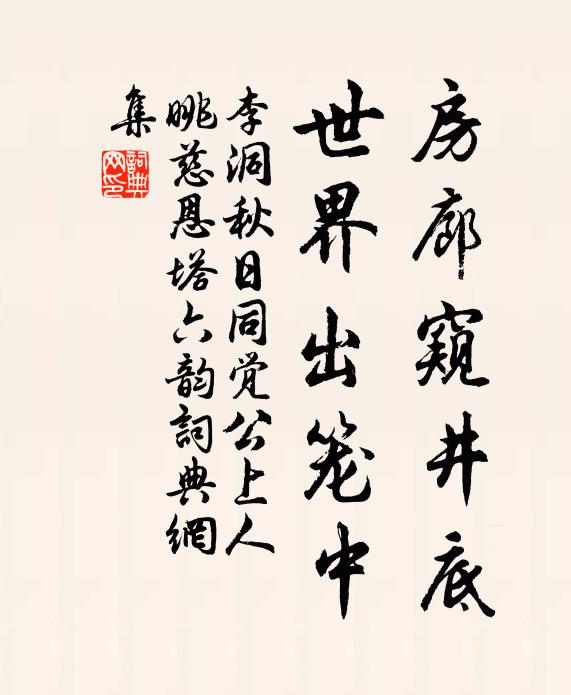 房廊窥井底
世界出笼中
李洞秋日同觉公上人
眺慈恩塔六韵詞典網
集
詞典
网印